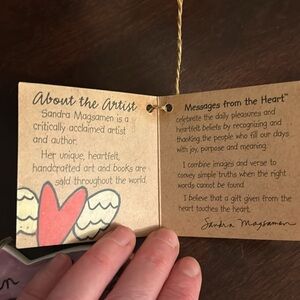 About the Artist
Sandra Magsamen is a
critically acclaimed artist
and author.
Her unique, heartfelt,
handcrafted art and books are
sold throughout the world.
Messages from the Heart™
celebrate the daily pleasures and
heartfelt beliefs by recognizing and
thanking the people who fill our days
with joy, purpose and meaning.
I combine images and verse to
convey simple truths when the right
words cannot be found.
I believe that a gift given from the
heart touches the heart.
Sandra Magsamen